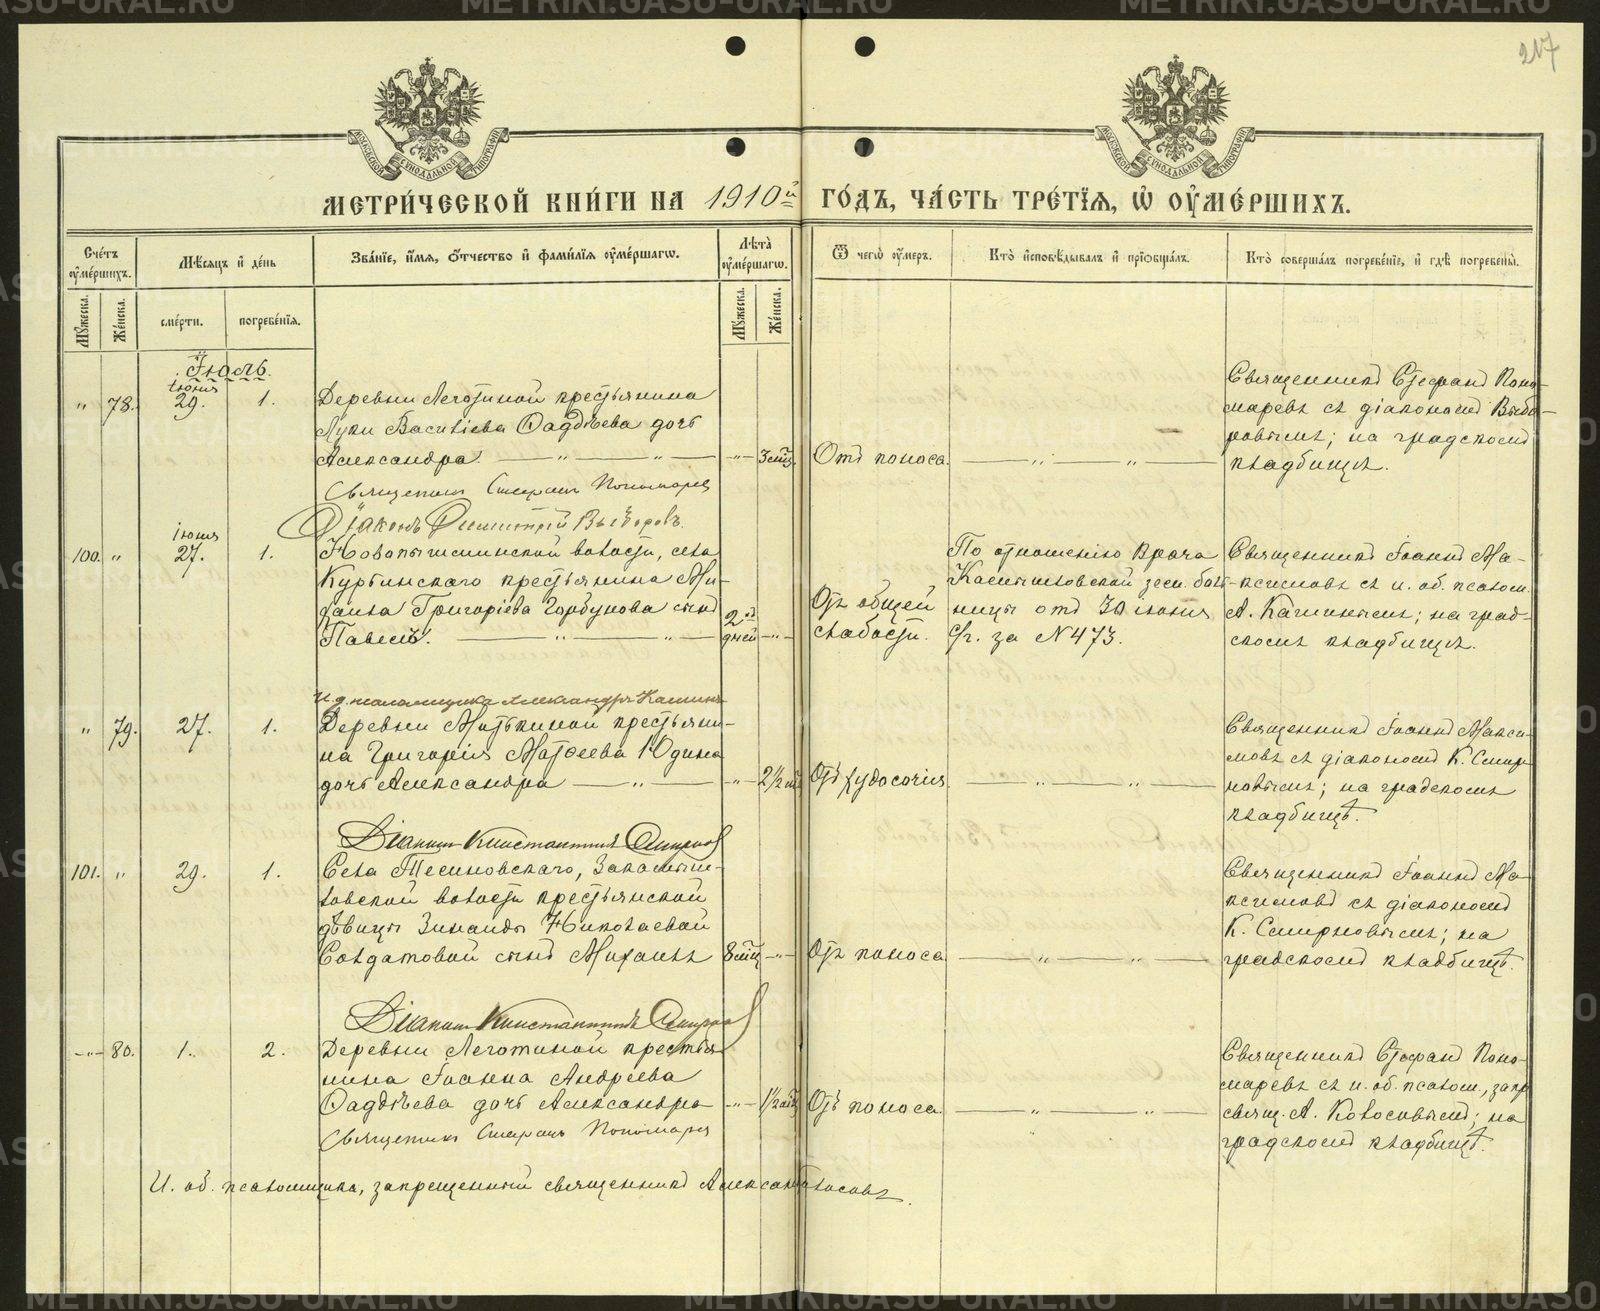 217
МОСКОВСКОЙ СѴНОДАЛЬНОЙ ТИПОГРАФІИ
МОСКОВСКОЙ СѴНОДАЛЬНОЙ ТИПОГРАФІИ
МЕТРИ́ЧЕСКОЙ КНИ́ГИ НА 1910й ГО́ДЪ, ЧА́СТЬ ТРЕ́ТІѦ, Ѡ҆ ОУ҆МЕ́РШИХЪ.
Сче́тъ оу҆ме́ршихъ.
Мѣ́сяцъ и҆ де́нь
Зва́ніе, и҆́мя, ѻ҆́тчество и҆ фами́лія оу҆ме́ршагѡ.
Лѣ́та оу҆ме́ршагѡ.
Ѿ чегѡ̀ оу҆́меръ.
Кто̀ и҆сповѣ́дывалъ и҆ прїѡбща́лъ.
Кто̀ соверша́лъ погребе́ніе, и҆ гдѣ̀ погребены̀.
Мꙋ́жеска.
Же́нска.
сме́рти.
погребе́нія.
Мꙋ́жеска.
Же́нска.
Іюль.
" 78. іюня 29. 1.
Деревни Леготиной крестьянина
Луки Василіева Фаддѣева дочь
Александра. — " — " — — " — 3 мѣс.
Отъ поноса. — " — " —
Священникъ Стефанъ Поно-
маревъ съ діакономъ Выбо-
ровымъ; на градскомъ
кладбищѣ.
Священникъ Стефанъ Пономарев
Діаконъ Димитрій Выборовъ.
100. " іюня 27. 1.
Новопышминской волости, села
Курьинскаго крестьянина Ми-
хаила Григоріева Горбунова сынъ
Павелъ. — " — " — 2 дней — " —
Отъ общей
слабости.
По отношенію врача
Камышловской зем. боль-
ницы отъ 30 іюня
с/г. за № 473.
Священникъ Іоаннъ Ма-
ксимовъ съ и. об. псалом.
А. Кашинымъ; на град-
скомъ кладбищѣ.
И. д. псаломщика Александръ Кашинъ
" 79. 27. 1.
Деревни Мотькиной крестьяни-
на Григорія Матѳеева Юдина
дочь Александра — " — — " — 2½ мѣс
Отъ худосочія — " — " —
Священникъ Іоаннъ Макси-
мовъ съ діакономъ К. Смир-
новымъ; на градскомъ
кладбищѣ.
Діаконъ Константинъ Смирновъ
101. " 29. 1.
Села Тесиновскаго, Закамыш-
ловской волости крестьянской
дѣвицы Зинаиды Николаевой
Солдатовой сынъ Михаилъ 8 мѣс — " —
Отъ поноса — " — " —
Священникъ Іоаннъ Ма-
ксимовъ съ діакономъ
К. Смирновымъ; на
градскомъ кладбищѣ.
Діаконъ Константинъ Смирновъ
— " — 80. 1. 2.
Деревни Леготиной крестья-
нина Іоанна Андреева
Фаддѣева дочь Александра — " — 1½ мѣс
Отъ поноса — " — " —
Священникъ Стефанъ Поно-
маревъ съ и. об. псалом., запр.
свящ. А. Колосовымъ; на
градскомъ кладбищѣ.
Священникъ Стефанъ Пономарев
И. об. псаломщика, запрещенный священникъ Александръ Колосовъ.
METRIKI.GASO-URAL.RU